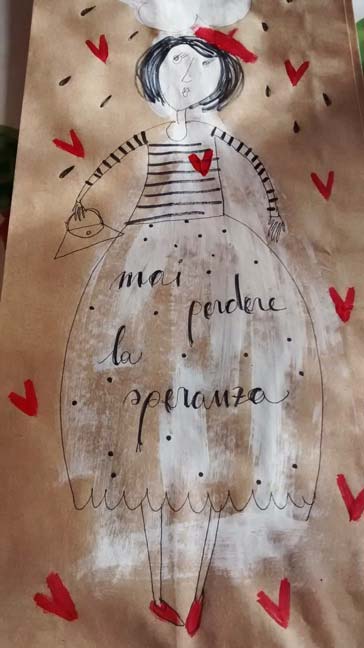 mai
perdere
la
speranza